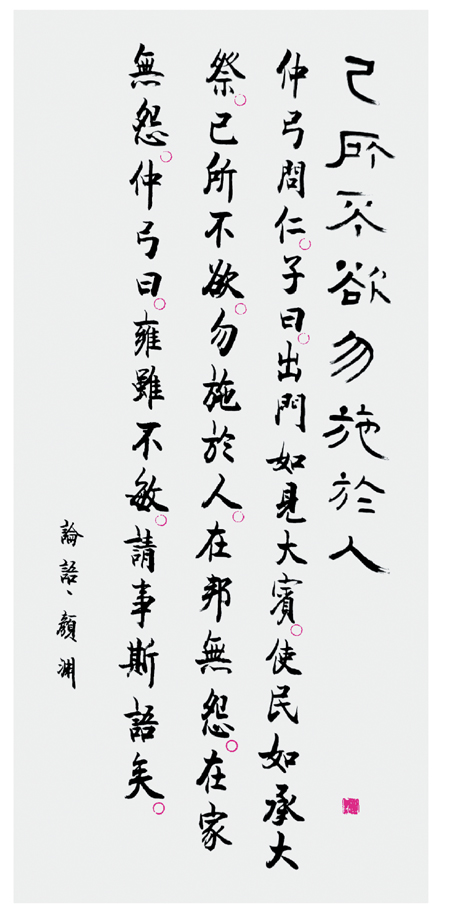 己所不欲勿施於人
仲弓問仁。子曰。出門如見大賓。使民如承大
祭。己所不欲。勿施於人。在邦無怨。在家
無怨。仲弓曰。雍雖不敏。請事斯語矣。
論語、顏淵